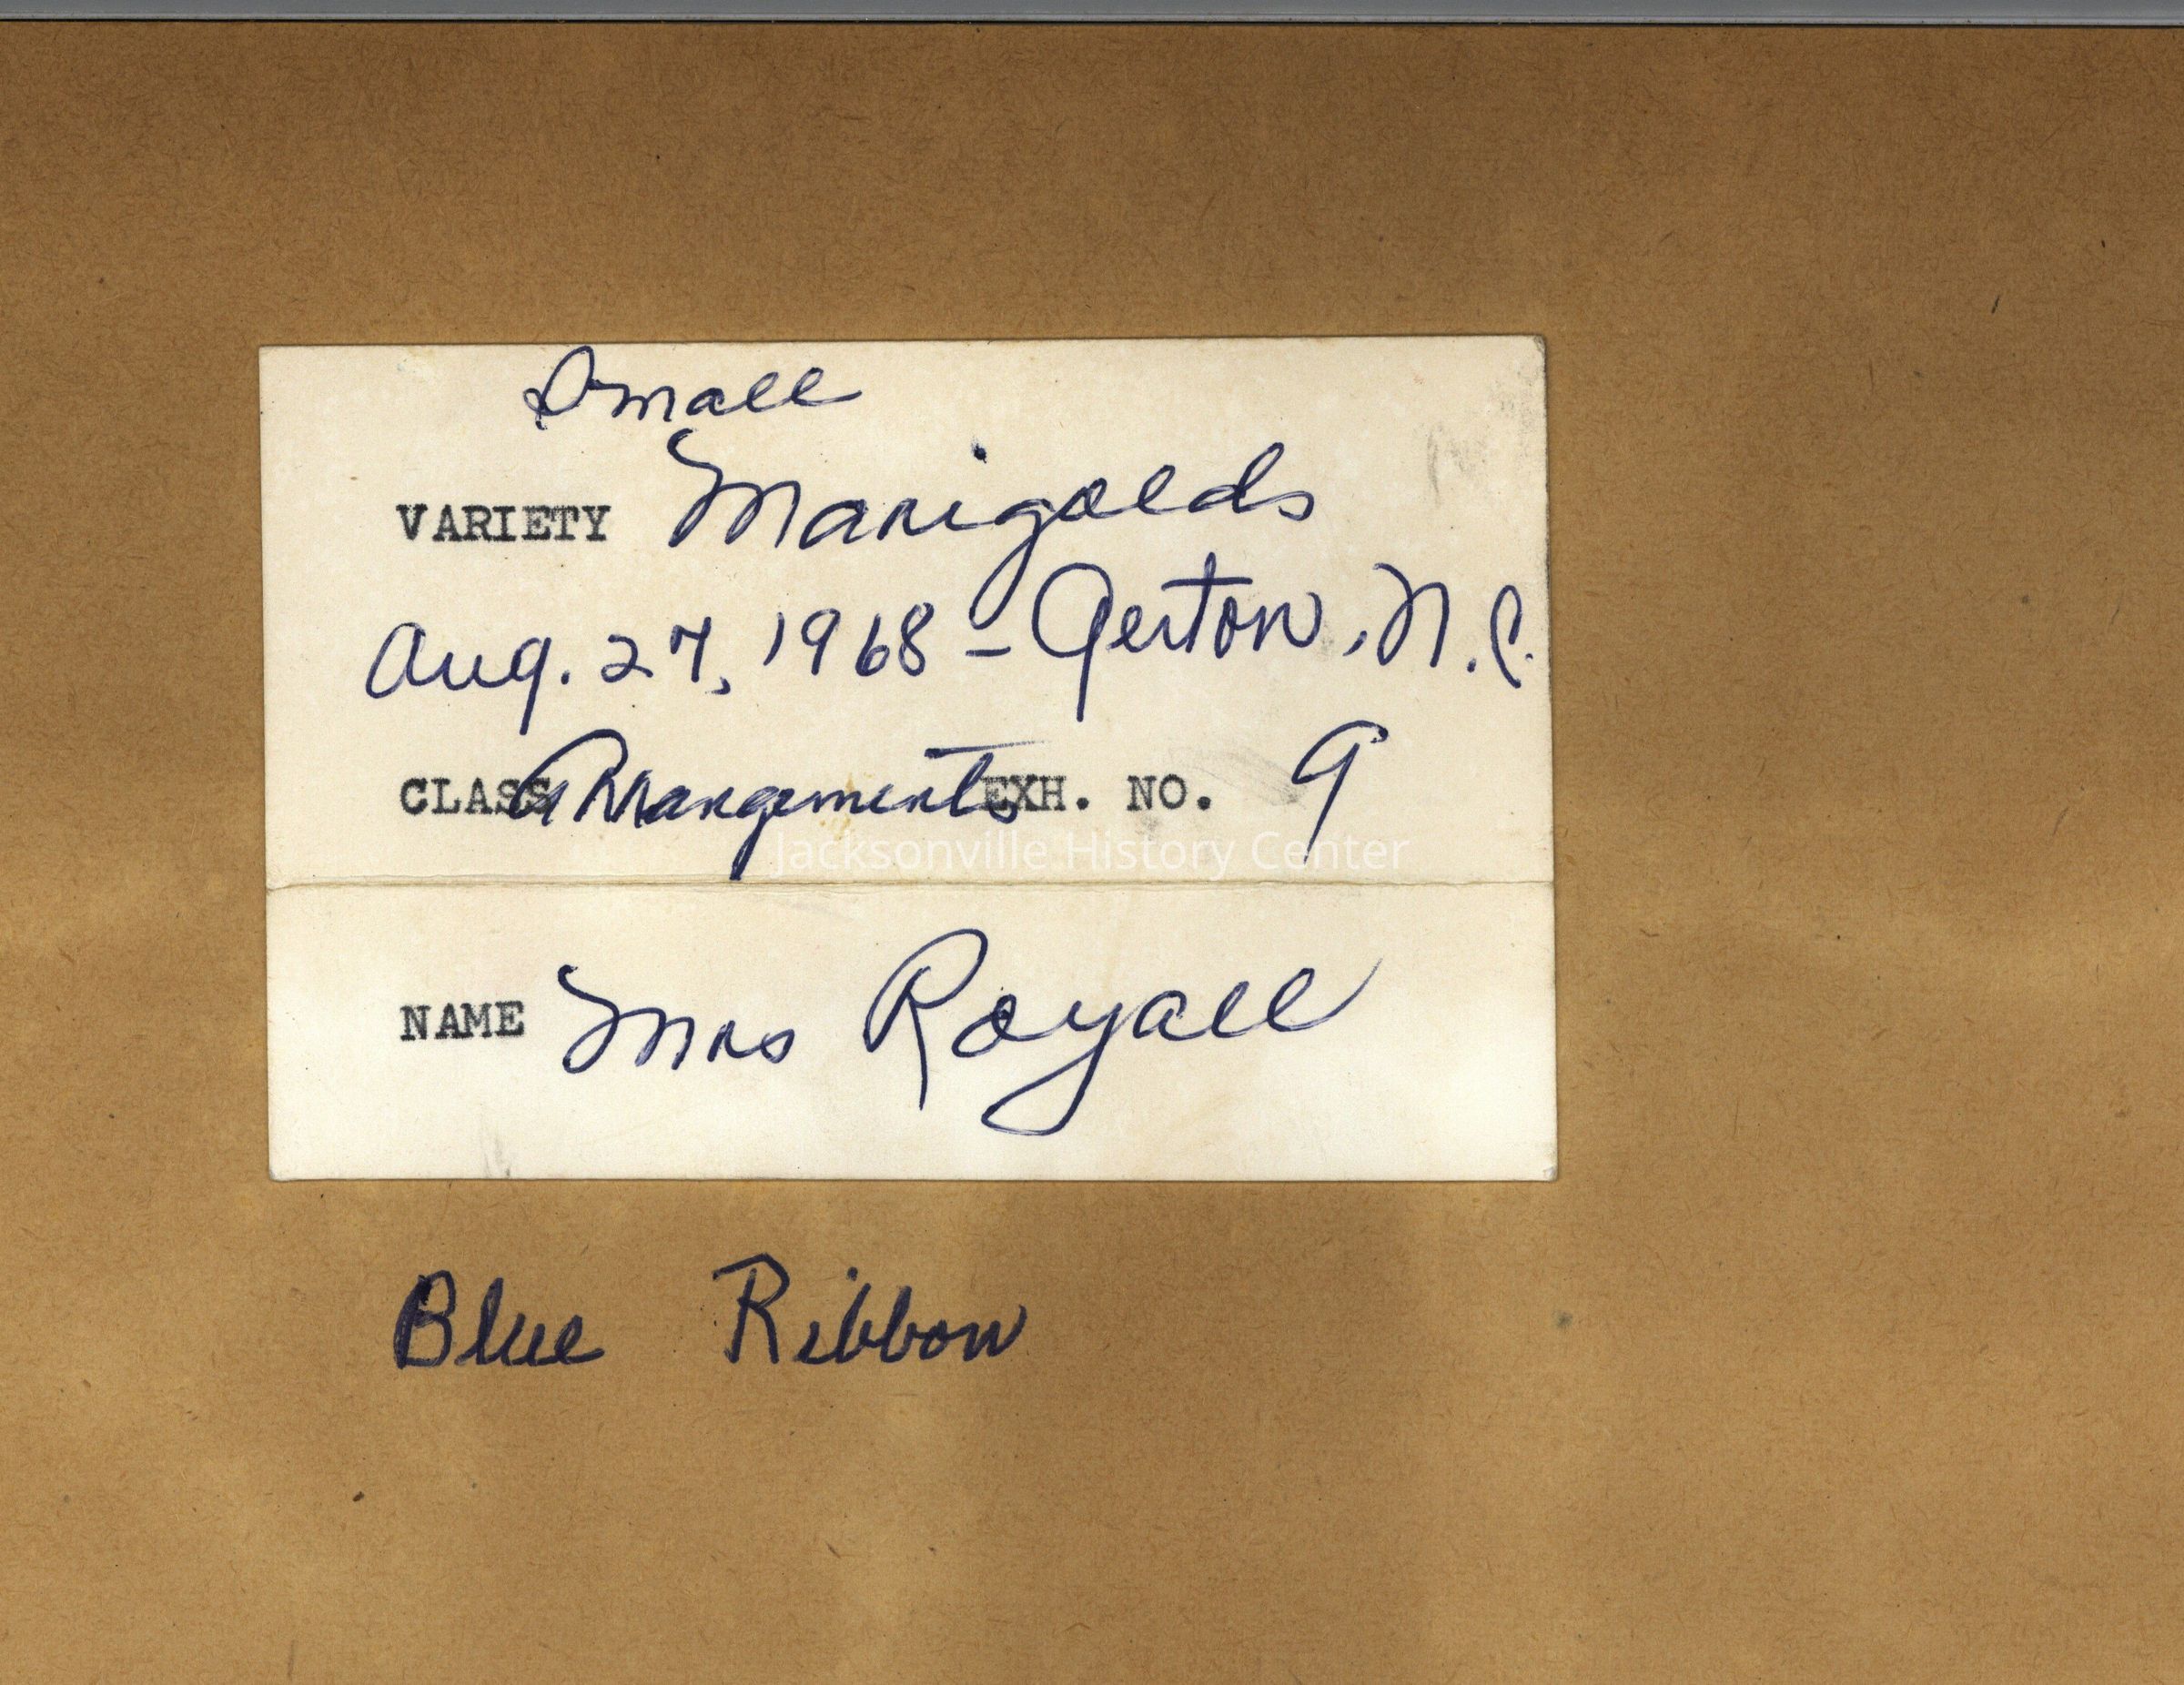 Small
VARIETY Marigolds
Aug. 27, 1968 - Gerton, N.C.
CLASS Arrangements EXH. NO. 9
Jacksonville History Center
NAME Mrs Royall
Blue Ribbon